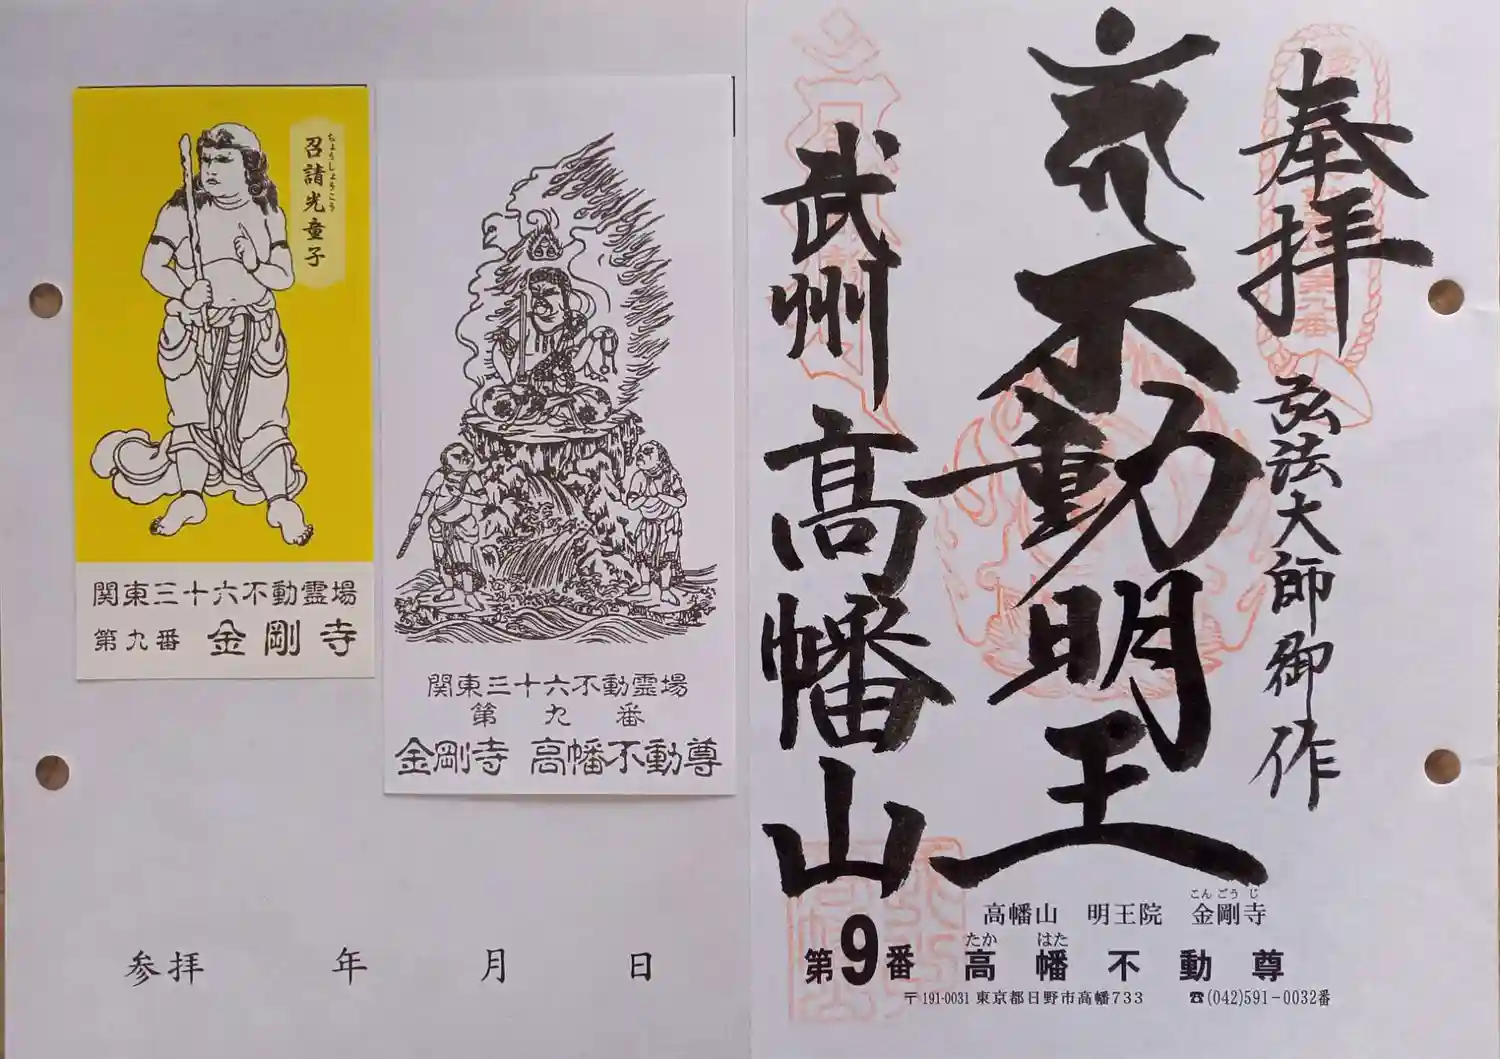 奉拝
弘法大師御作
不動明王
武州
高幡山
こんごうじ
高幡山 明王院 金剛寺
たか はた
第9番 高幡不動尊
〒191-0031 東京都日野市高幡733 ☎(042)591-0032番
ちょうしょうこう
召請光童子
関東三十六不動霊場
第九番 金剛寺
関東三十六不動霊場
第九番
金剛寺 高幡不動尊
参拝 年 月 日